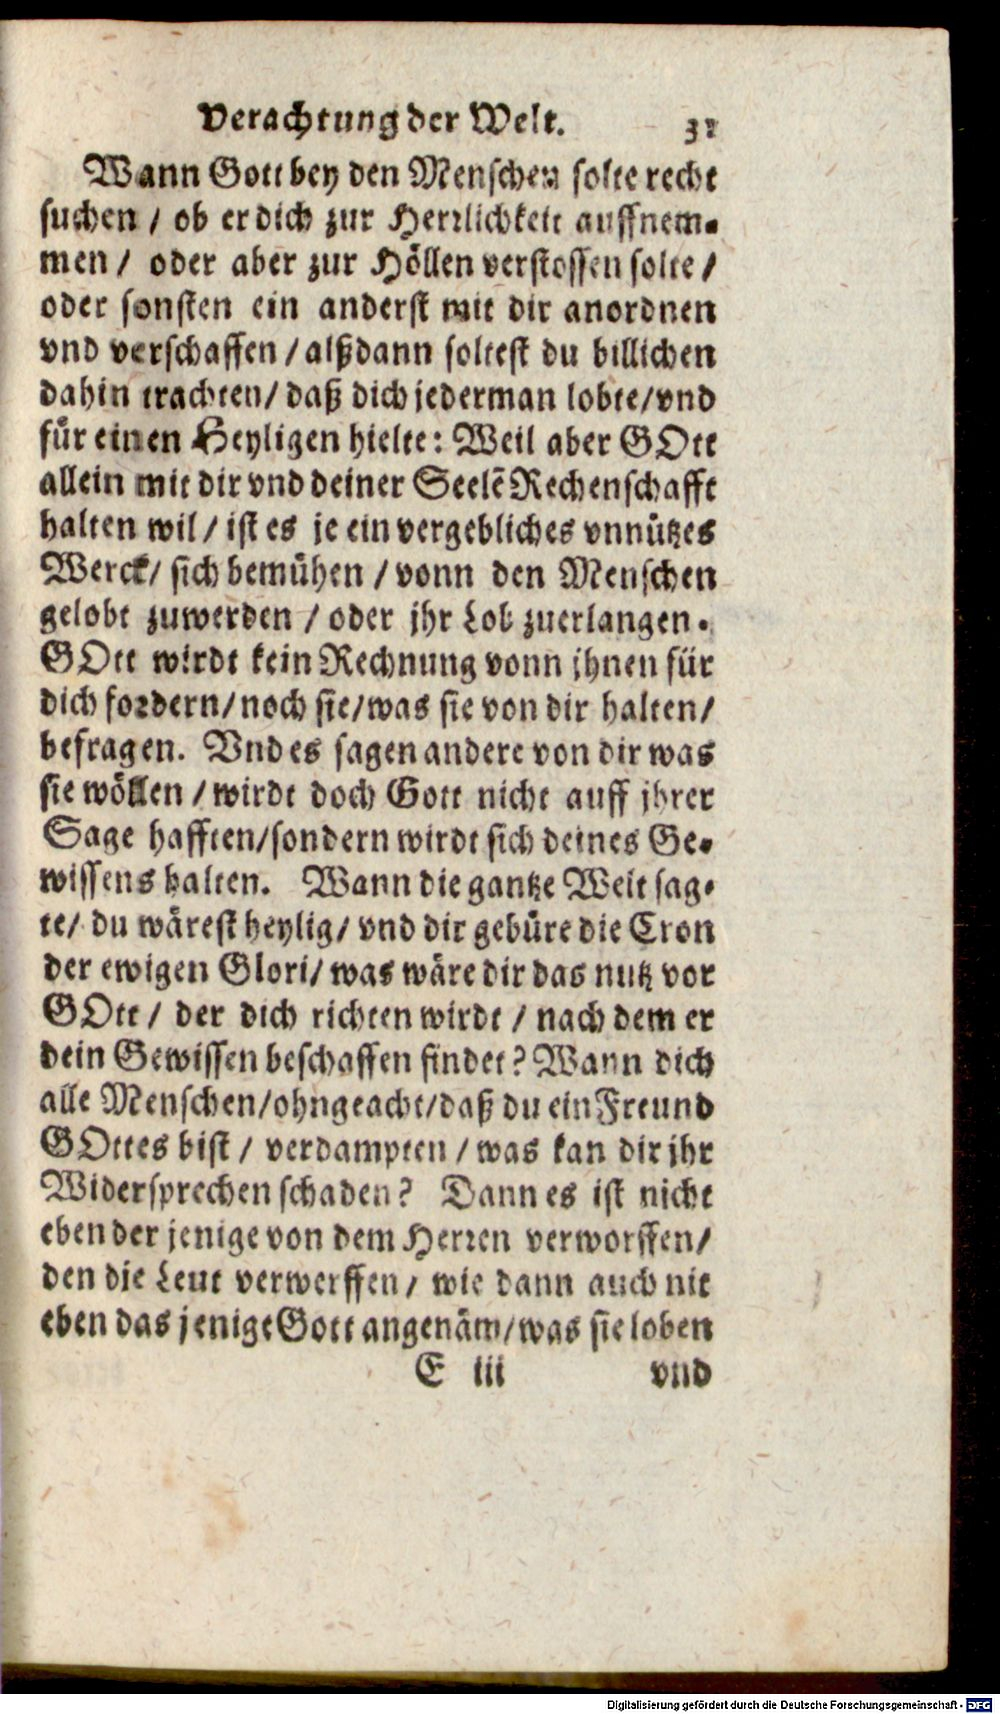 Verachtung der Welt. 31
Wann Gott bey den Menschen solte recht
suchen / ob er dich zur Herrlichkeit auffnem-
men / oder aber zur Höllen verstossen solte /
oder sonsten ein anderst mit dir anordnen
vnd verschaffen / alßdann soltest du billichen
dahin trachten / daß dich jederman lobte / vnd
für einen Heyligen hielte: Weil aber GOtt
allein mit dir vnd deiner Seelẽ Rechenschafft
halten wil / ist es je ein vergebliches vnnützes
Werck / sich bemühen / vonn den Menschen
gelobt zuwerden / oder jhr Lob zuerlangen.
GOtt wirdt kein Rechnung vonn jhnen für
dich fordern / noch sie / was sie von dir halten /
befragen. Vnd es sagen andere von dir was
sie wöllen / wirdt doch Gott nicht auff jhrer
Sage hafften / sondern wirdt sich deines Ge-
wissens halten. Wann die gantze Welt sag-
te / du wärest heylig / vnd dir gebüre die Cron
der ewigen Glori / was wäre dir das nutz vor
GOtt / der dich richten wirdt / nach dem er
dein Gewissen beschaffen findet? Wann dich
alle Menschen / ohngeacht / daß du ein Freund
GOttes bist / verdampten / was kan dir jhr
Widersprechen schaden? Dann es ist nicht
eben der jenige von dem Herren verworffen /
den die Leut verwerffen / wie dann auch nit
eben das jenige Gott angenäm / was sie loben
E iii vnd
Digitalisierung gefördert durch die Deutsche Forschungsgemeinschaft - DFG